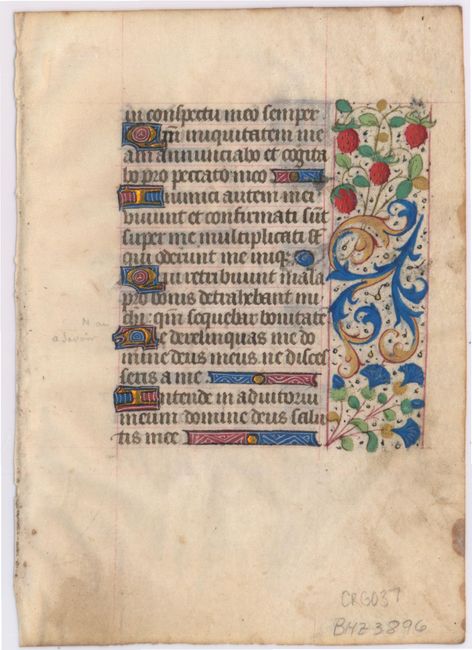 in conspectu meo semper
Qm̄ iniquitatem me
am annunciabo et cogita
bo pro peccato meo
Inimici autem mei
vivunt et confirmati sūt
super me multiplicati st̄
qui oderunt me iniq₃
Qui retribuunt mala
pro bonis detrahebant mi
chi: qm̄ sequebar bonitatē
Ne derelinquas me do
mine deus meus ne disces
seris a me
Intende in adiutoriū
meum domine deus salu
tis mee
CRG037
BHZ3896